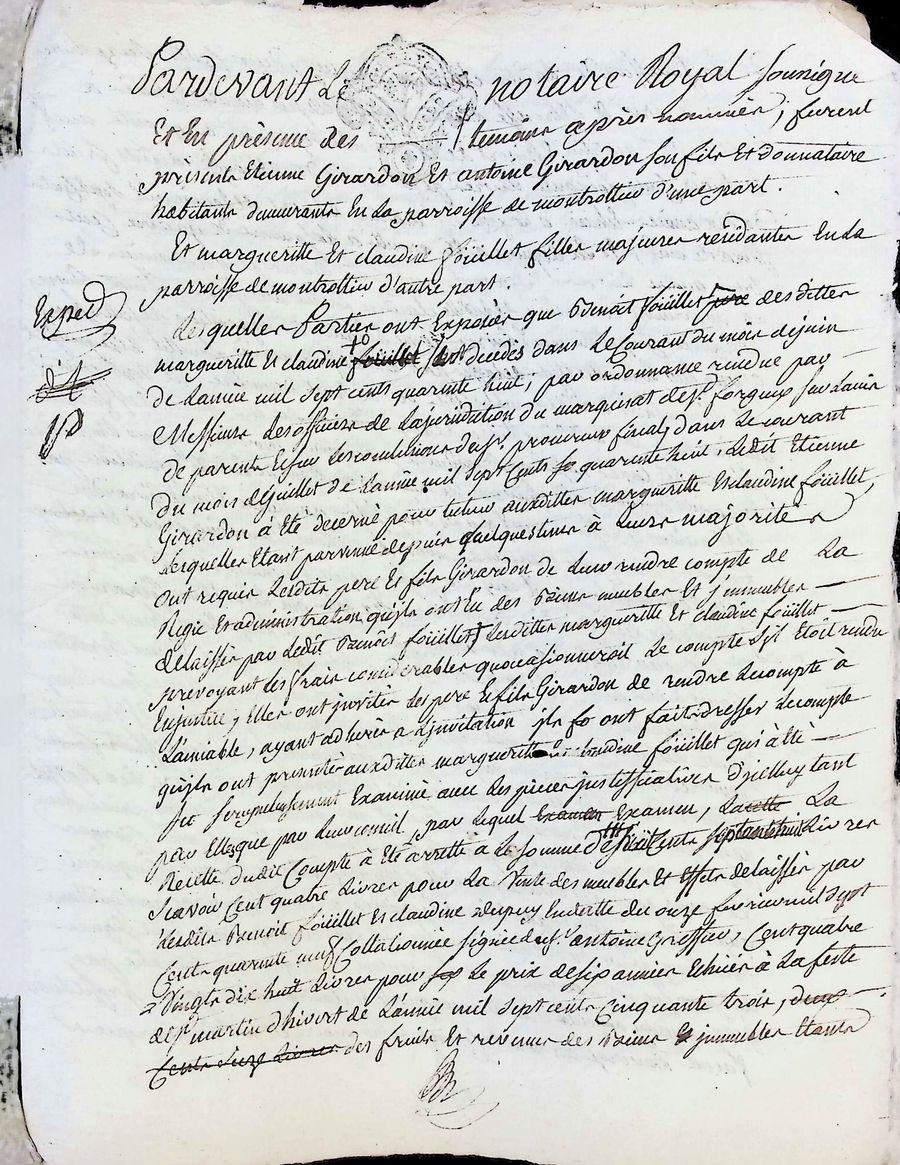 Pardevant Le notaire Royal sousigne
Et En présence des temoins après nommés, furent
présents Etienne Girardon Et antoine Girardon son fils Et donnataire
habitants demeurants En La parroisse de montrottier d'une part.
Et margueritte Et claudine fouillet filles majeures residantes En La
parroisse de montrottier d'autre part.
Exped
Lesquelles Parties ont Exposées que Benoit fouillet pere desdittes
margueritte Et claudine fouillet decedes dans Le Courant du mois de juin
de L'année mil sept cents quarente huit, par ordonnance rendue par
Messieurs Les officiers de La juridition du marquisat de st. forgeux sur L'avis
de parents Et sur Les conclusions du sr. procureur fiscal, dans Le courant
du mois de juillet de L'année mil sept Cents quarente huit, Ledit Etienne
Girardon à Eté decerné pour tuteur auxdittes margueritte Et claudine fouillet,
Lesquelles Etant parvenue depuis quelques tems à Leurs majorités
ont requis Lesdits pere Et fils Girardon de Leur rendre compte de La
Regie Et administration qu'ils ont Eu des Biens meubles Et jmmeubles
delaissés par Ledit Benoit fouillet, Lesdittes margueritte Et claudine fouillet
prevoyant Les frais considerables qu'ocasionneroit Le compte s'il Etoit rendu
En justice, Elles ont jnvités Les pere Et fils Girardon de rendre Le compte à
L'amiable, ayant adherés a L'jnvitation jls ont fait dresser Le compte
qu'jls ont presenté auxdittes margueritte Et claudine fouillet qui à Eté
scrupuleusement Examiné avec Les pieces justifficatives d'jcelluy tant
par Elles que par Leur conseil, par Lequel Examen Examen, La cette La
Recette dudit Compte à Eté arretté a La somme de Cents septante huit Livres
scavoir Cent quatre Livres pour La Vente des meubles Et Effets delaissés par
Lesdits Benoit fouillet Et claudine Dupuy En datte du onze fevrier mil sept
Cents quarente neuf Collationnée signée du sr. antoine Gressieu, Cent quatre
Vingts dix huit Livres pour Le prix de six années Echües à La feste
de st. martin d'hivert de L'année mil sept cents Cinquante trois, deux
Cents seize Livres des fruits Et revenus des Biens Et jmmeubles Etants